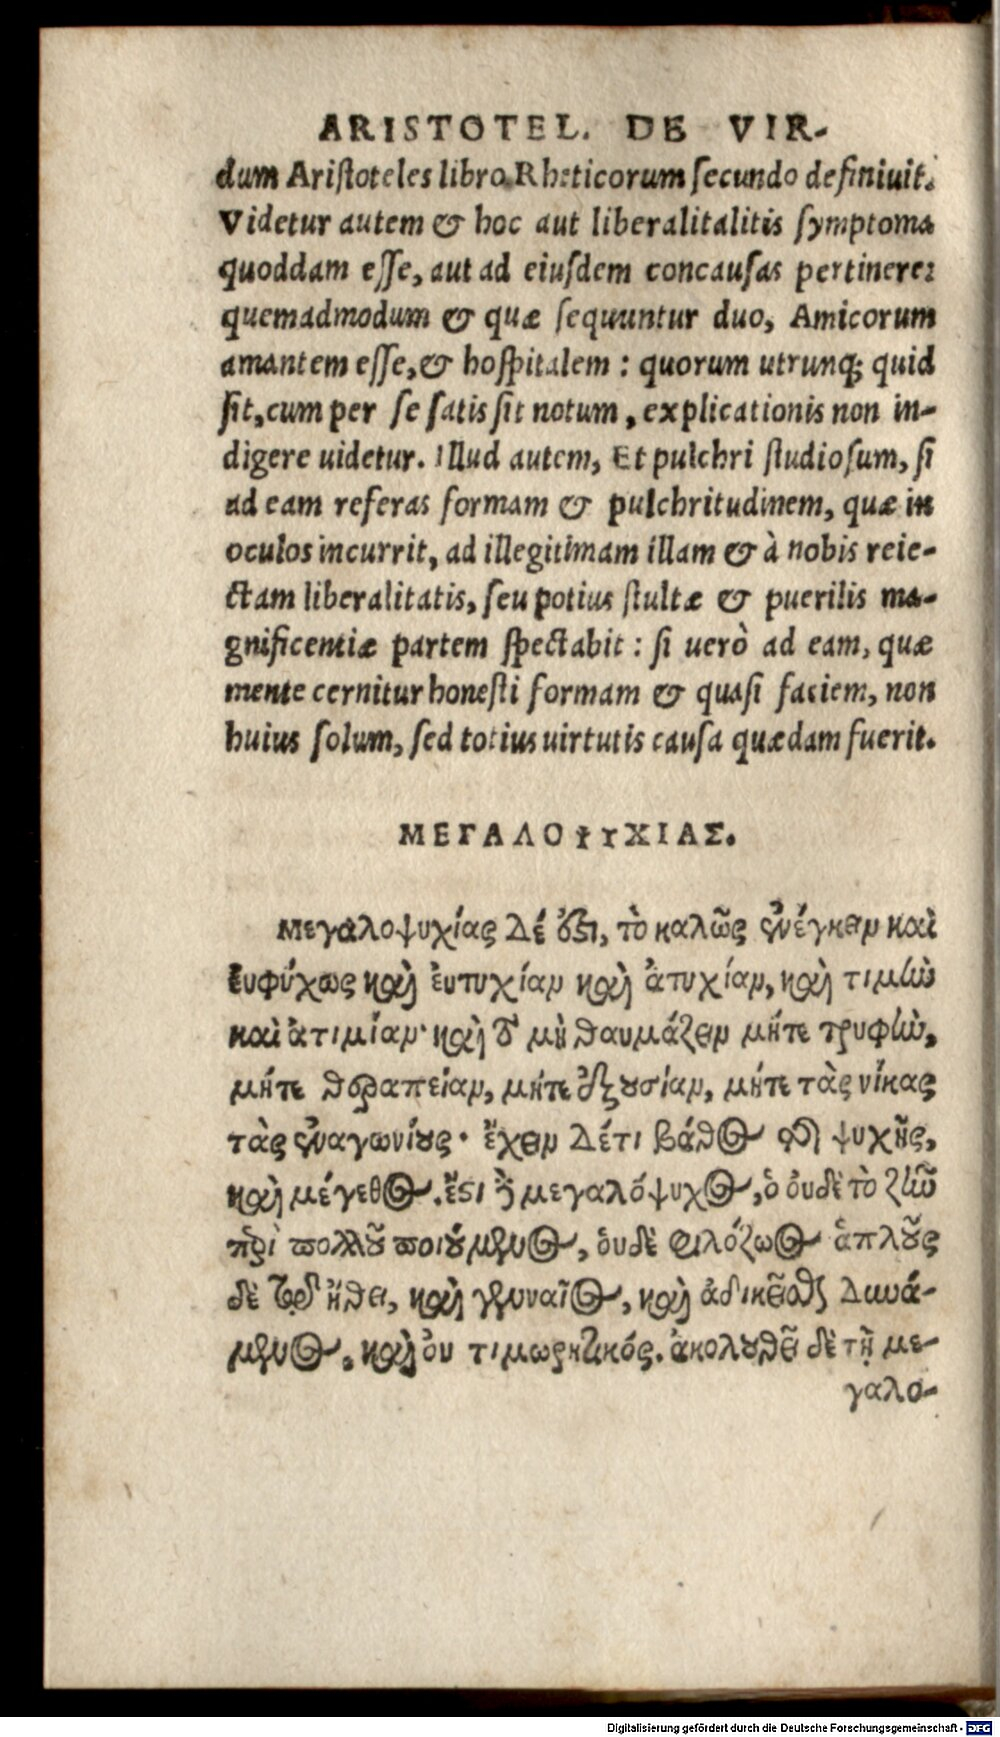 ARISTOTEL. DE VIR-
dum Aristoteles libro Rheticorum secundo definiuit.
Videtur autem & hoc aut liberalitalitis symptoma
quoddam esse, aut ad eiusdem concausas pertinere:
quemadmodum & quæ sequuntur duo, Amicorum
amantem esse, & hospitalem : quorum utrunq; quid
sit, cum per se satis sit notum, explicationis non in-
digere uidetur. Illud autem, Et pulchri studiosum, si
ad eam referas formam & pulchritudinem, quæ in
oculos incurrit, ad illegitimam illam & à nobis reie-
ctam liberalitatis, seu potius stultæ & puerilis ma-
gnificentiæ partem spectabit : si uerò ad eam, quæ
mente cernitur honesti formam & quasi faciem, non
huius solum, sed totius uirtutis causa quædam fuerit.
ΜΕΓΑΛΟΨΥΧΙΑΣ.
Μεγαλοψυχίας δέ ὅβι, τὸ καλῶς ἐνέγκειν καὶ
ἐυψύχως καὶ ἐυτυχίαν καὶ ἀτυχίαν, καὶ τιμὴν
καὶ ἀτιμίαν· καὶ τὸ μὴ θαυμάζειν μήτε τρυφὴν,
μήτε θεραπείαν, μήτε ἐξουσίαν, μήτε τὰς νίκας
τὰς ἐναγωνίους· ἔχειν δέ τι βάθος τῆς ψυχῆς,
καὶ μέγεθος. ἔστι δὲ μεγαλόψυχος, ὁ ὀυδὲ τὸ ζῆν
περὶ πολλοῦ ποιούμενος, ὀυδὲ φιλόζωος ἁπλοῦς
δὲ τῷ ἤθει, καὶ γενναῖος, καὶ ἀδικεῖσθαι δυνά-
μενος, καὶ ὀυ τιμωρητικός. ἀκολουθεῖ δὲ τῇ με-
γαλο-
Digitalisierung gefördert durch die Deutsche Forschungsgemeinschaft - DFG